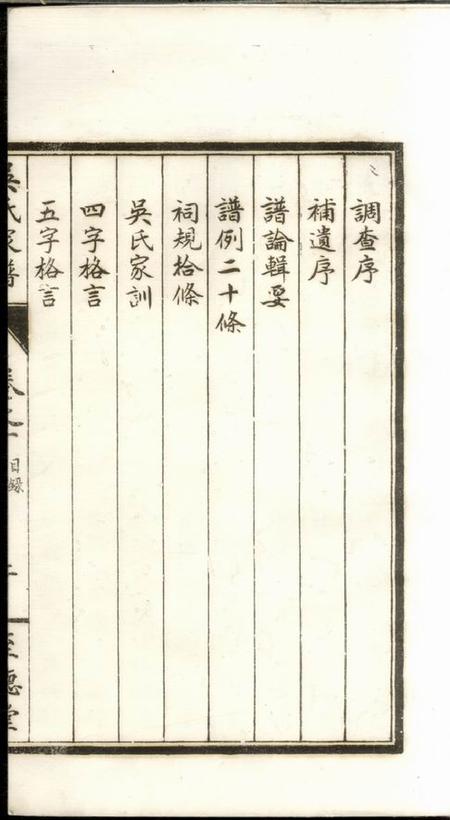 調查序
補遺序
譜論輯要
譜例二十條
祠規拾條
吳氏家訓
四字格言
五字格言
吳氏家譜
卷之一
目錄
二
至德堂